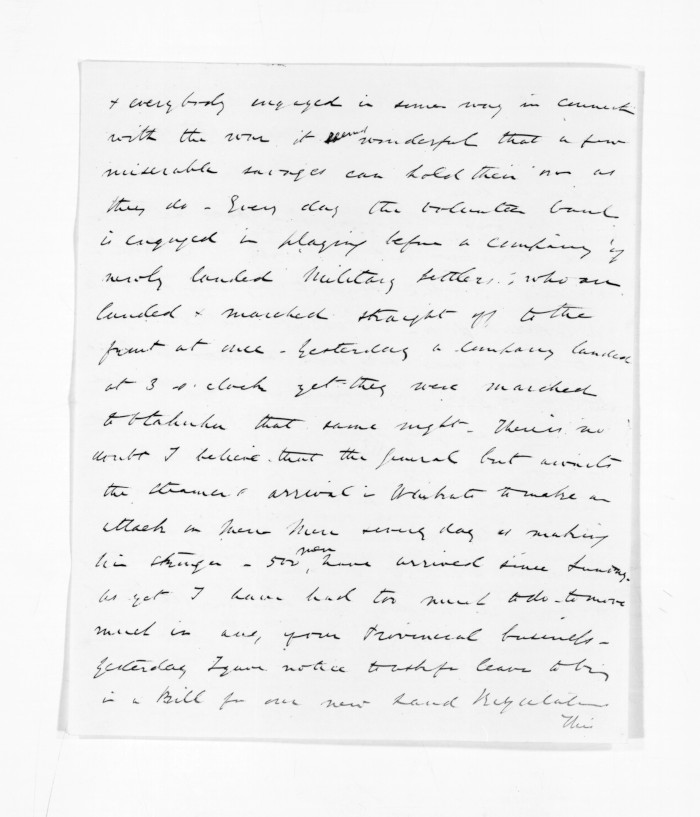 & everybody engaged in some way in connect
with the war it seems wonderful that a few
miserable savages can hold their own as
they do - Every day the volunteer band
is engaged in playing before a company of
newly landed Military Settlers; who are
landed & marched straight off to the
front at once - Yesterday a company landed
at 3 o'clock yet they were marched
to Otahuhu that same night - There is no
doubt I believe that the General but awaits
the steamers arrival in Waikato to make an
attack on Mere Mere every day is making
him stronger - 500 men have arrived since Sunday -
as yet I have had too much to do to move
much in any, your Provincial business -
Yesterday I gave notice to ask for leave to bring
in a Bill for our new Land Regulations
This